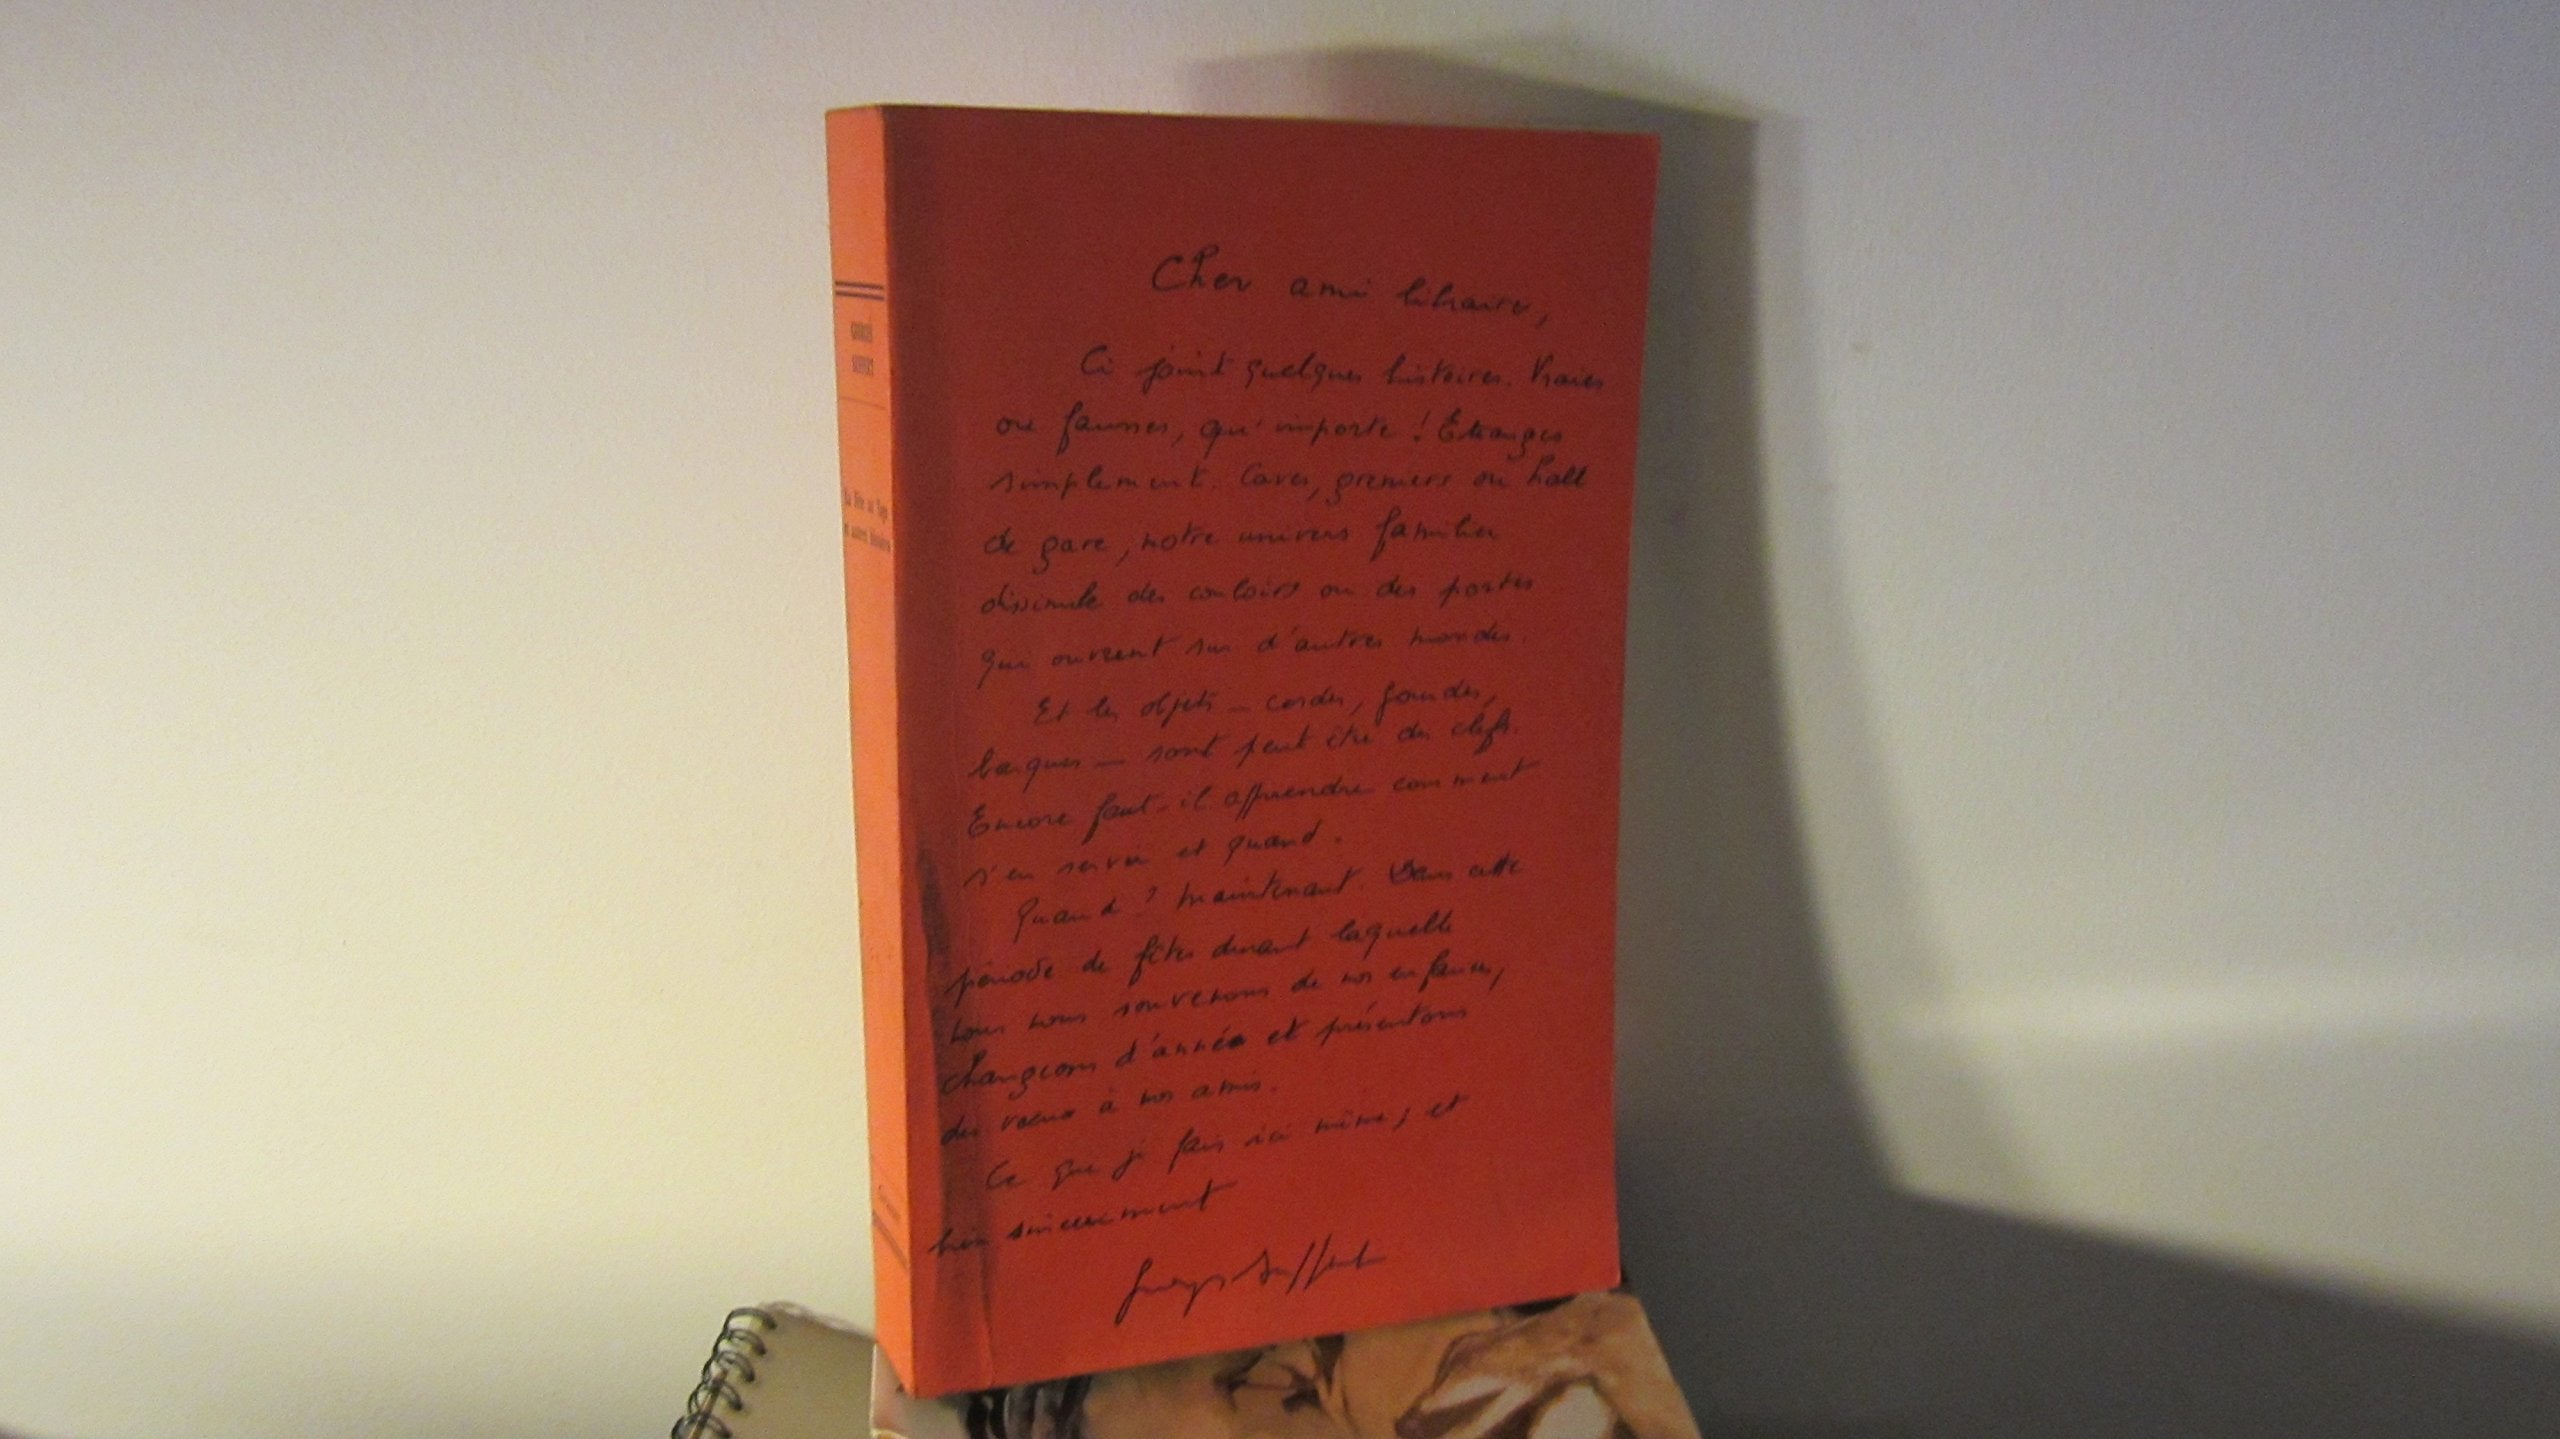 Cher ami libraire,
Ci joint quelques histoires. Vraies
ou fausses, qu'importe ! Etranges
simplement. Caves, greniers ou hall
de gare, notre univers familier
dissimule des couloirs ou des portes
qui ouvrent sur d'autres mondes.
Et les objets – cordes, gourdes,
barques – sont peut être des clefs.
Encore faut-il apprendre comment
s'en servir et quand.
Quand ? maintenant. Dans cette
période de fêtes durant laquelle
nous nous souvenons de nos enfances,
changeons d'année et présentons
des vœux à nos amis.
Ce que je fais ici même ; et
bien sincèrement
Georges Suffert
GEORGES
SUFFERT
et autres histoires